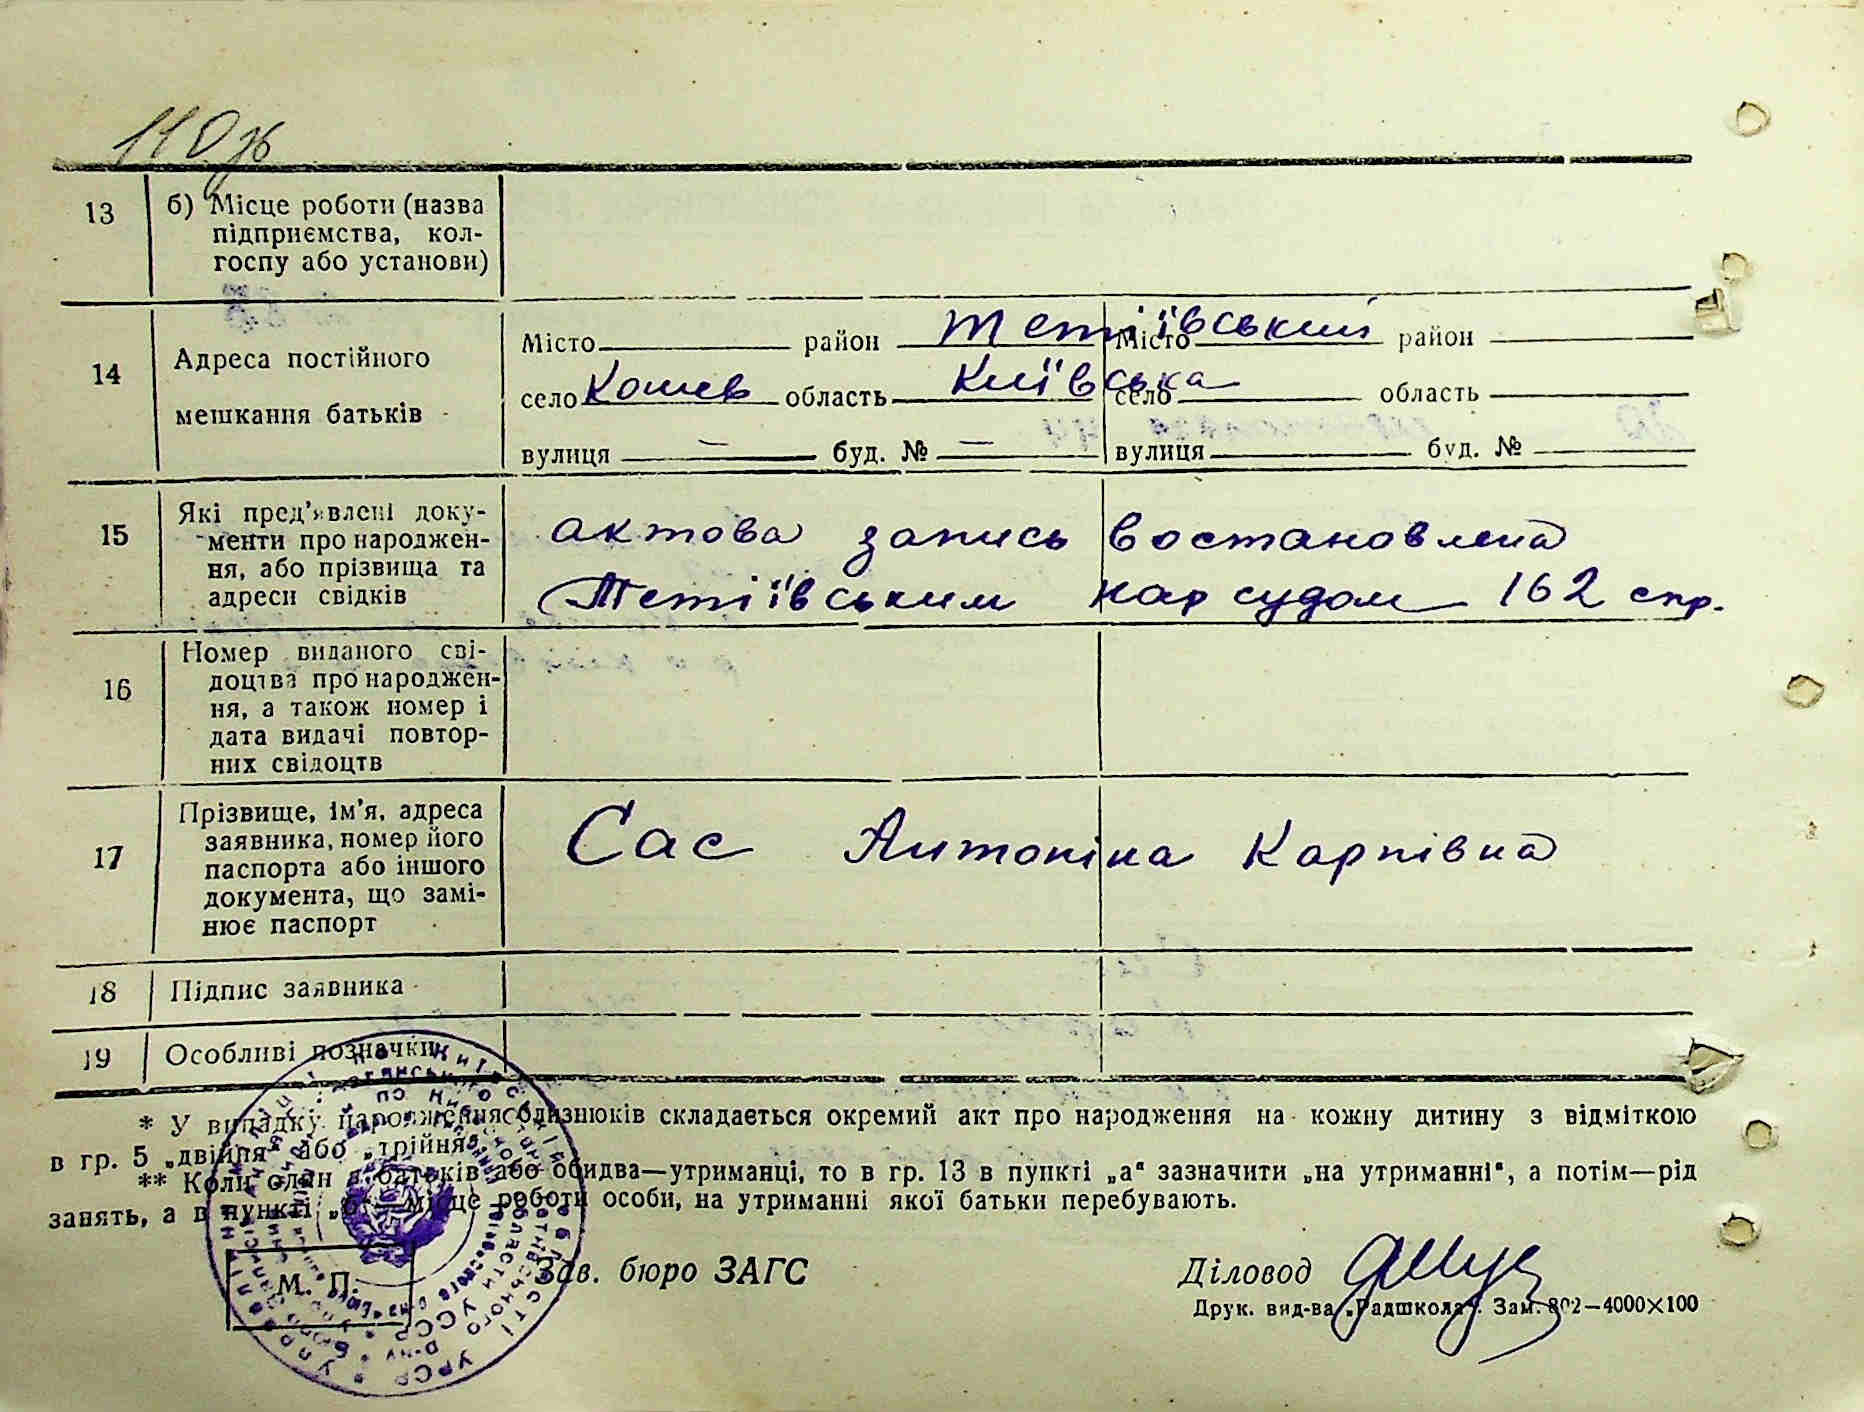 110 зв
13 б) Місце роботи (назва
підприємства, кол-
госпу або установи)
14 Адреса постійного
мешкання батьків
Місто район Тетіївський Місто район
село Кошев область Київська село область
вулиця — буд. № — вулиця буд. №
15 Які пред'явлені доку-
менти про народжен-
ня, або прізвища та
адреси свідків
актова запись востановлена
Тетіївським нарсудом 162 спр.
16 Номер виданого сві-
доцтва про народжен-
ня, а також номер і
дата видачі повтор-
них свідоцтв
17 Прізвище, ім'я, адреса
заявника, номер його
паспорта або іншого
документа, що замі-
нює паспорт
Сас Антоніна Карпівна
18 Підпис заявника
19 Особливі позначки
* У випадку народження близнюків складається окремий акт про народження на кожну дитину з відміткою
в гр. 5 „двійня“ або „трійня“.
** Коли один з батьків або обидва—утриманці, то в гр. 13 в пункті „а“ зазначити „на утриманні“, а потім—рід
занять, а в пункті „б“—місце роботи особи, на утриманні якої батьки перебувають.
М. П. Зав. бюро ЗАГС Діловод
Друк. вид-ва „Радшкола“. Зам. 802—4000×100